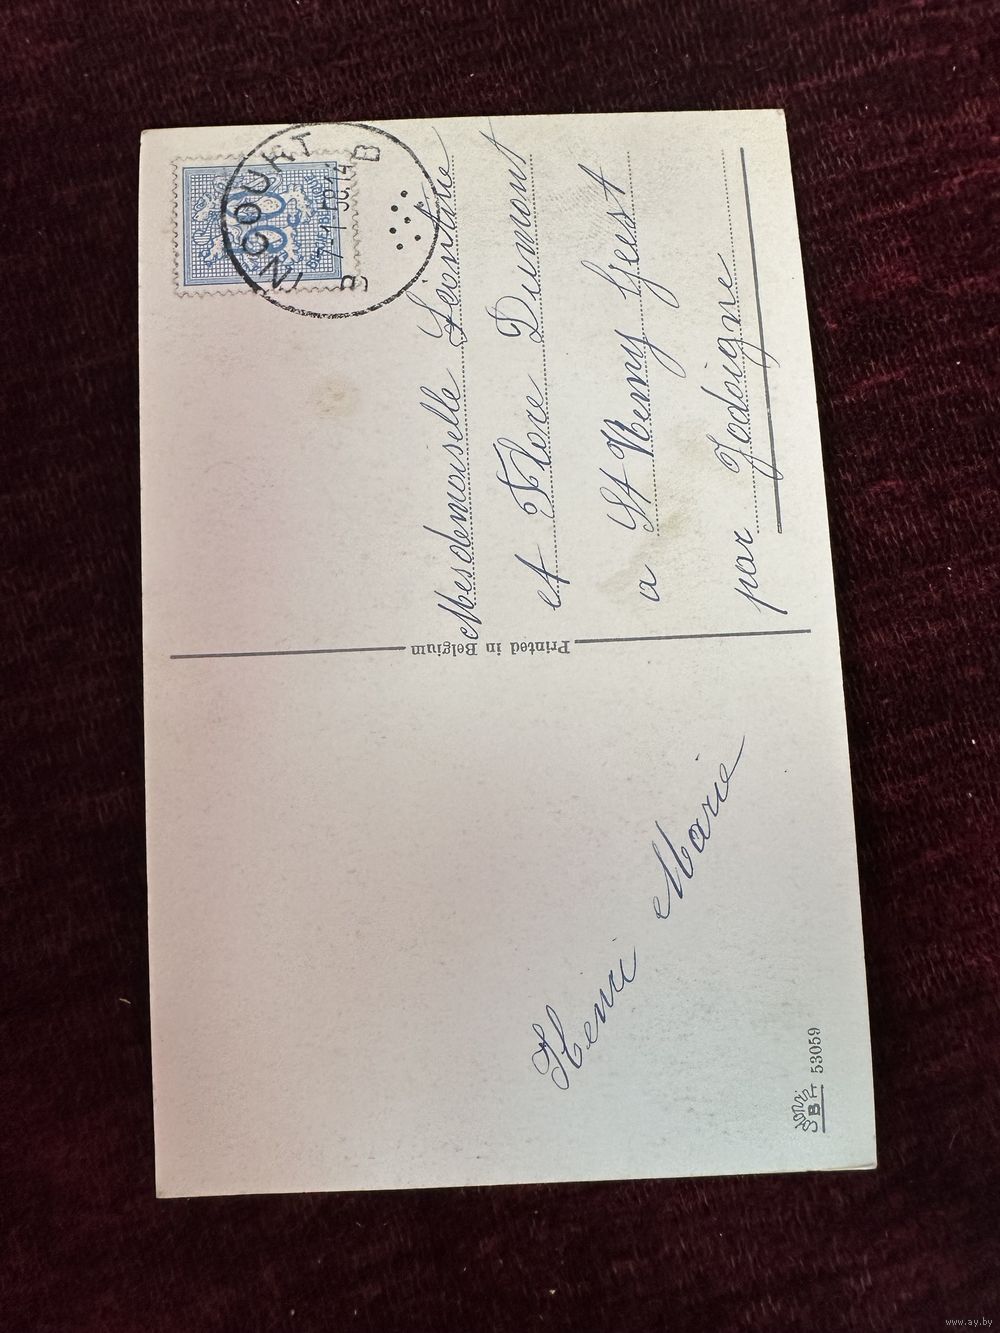 INCOURT
B B
60
Mesdemoiselle Léontine
et Flore Dumont
a St Remy Geest
par Jodoigne
Printed in Belgium
Henri Marie
53059
www.ay.by